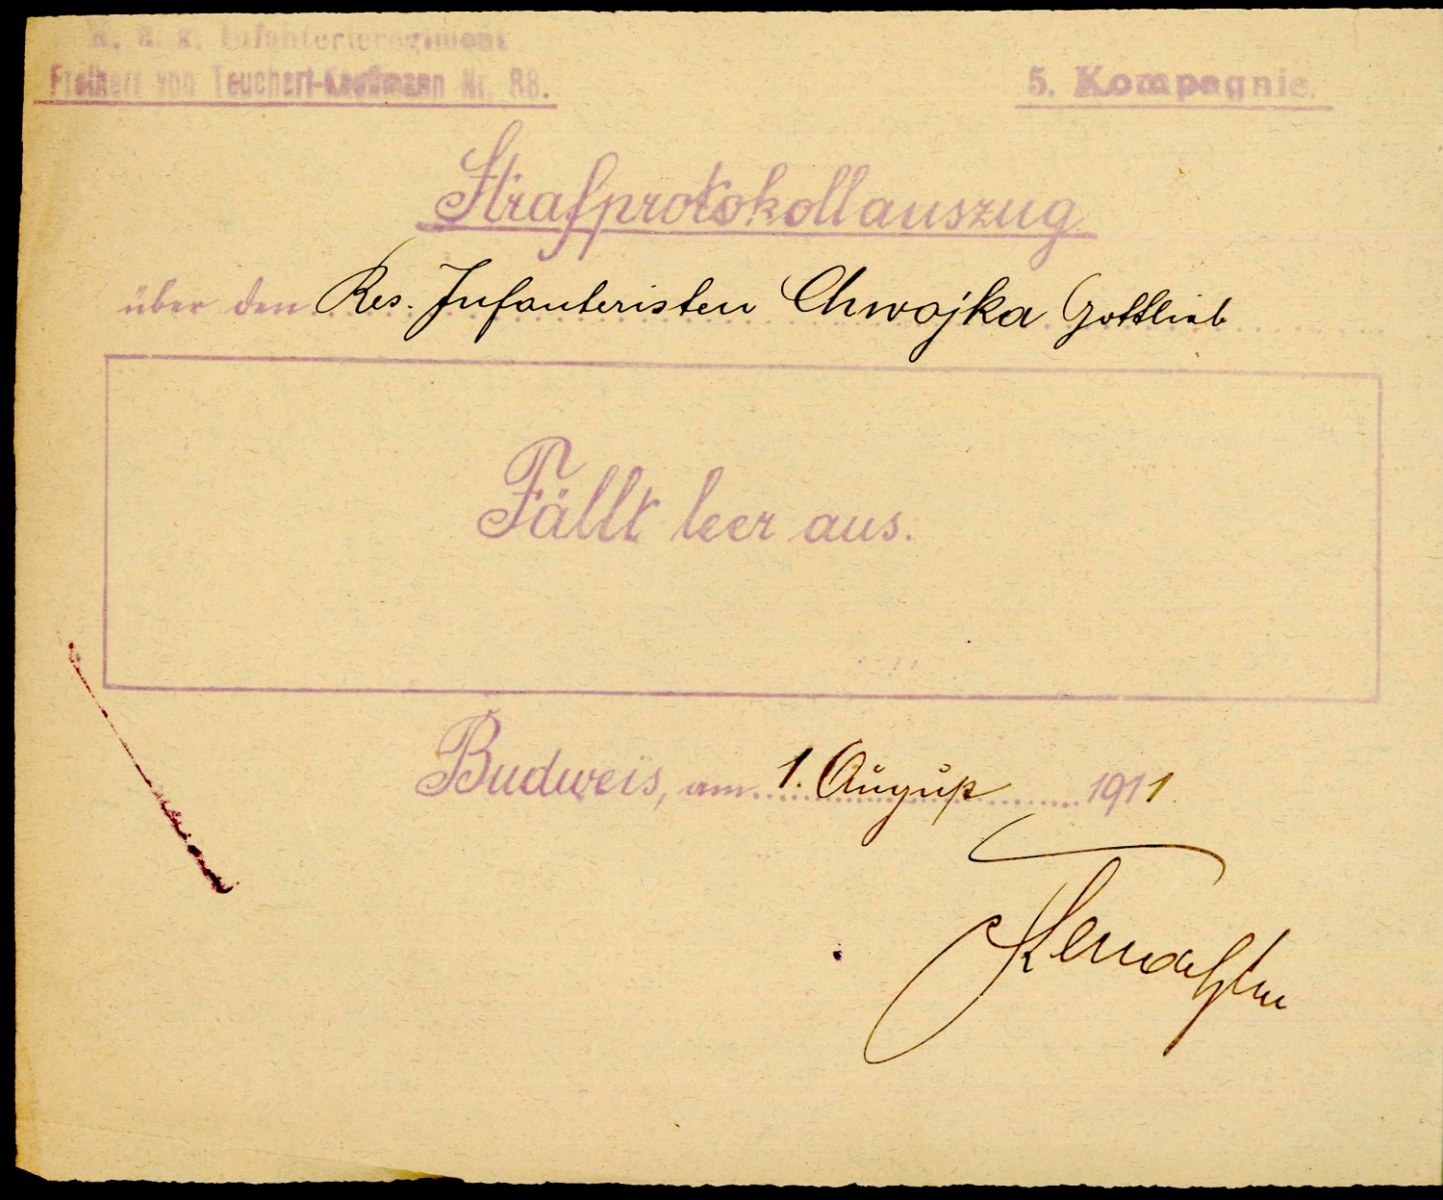 K. u. k. Infanterieregiment
Freiherr von Teuchert-Kauffmann Nr. 88.
5. Kompagnie.
Strafprotokollauszug
über den Res. Infanteristen Chwojka Gottlieb
Fällt leer aus.
Budweis, am 1. August 1911